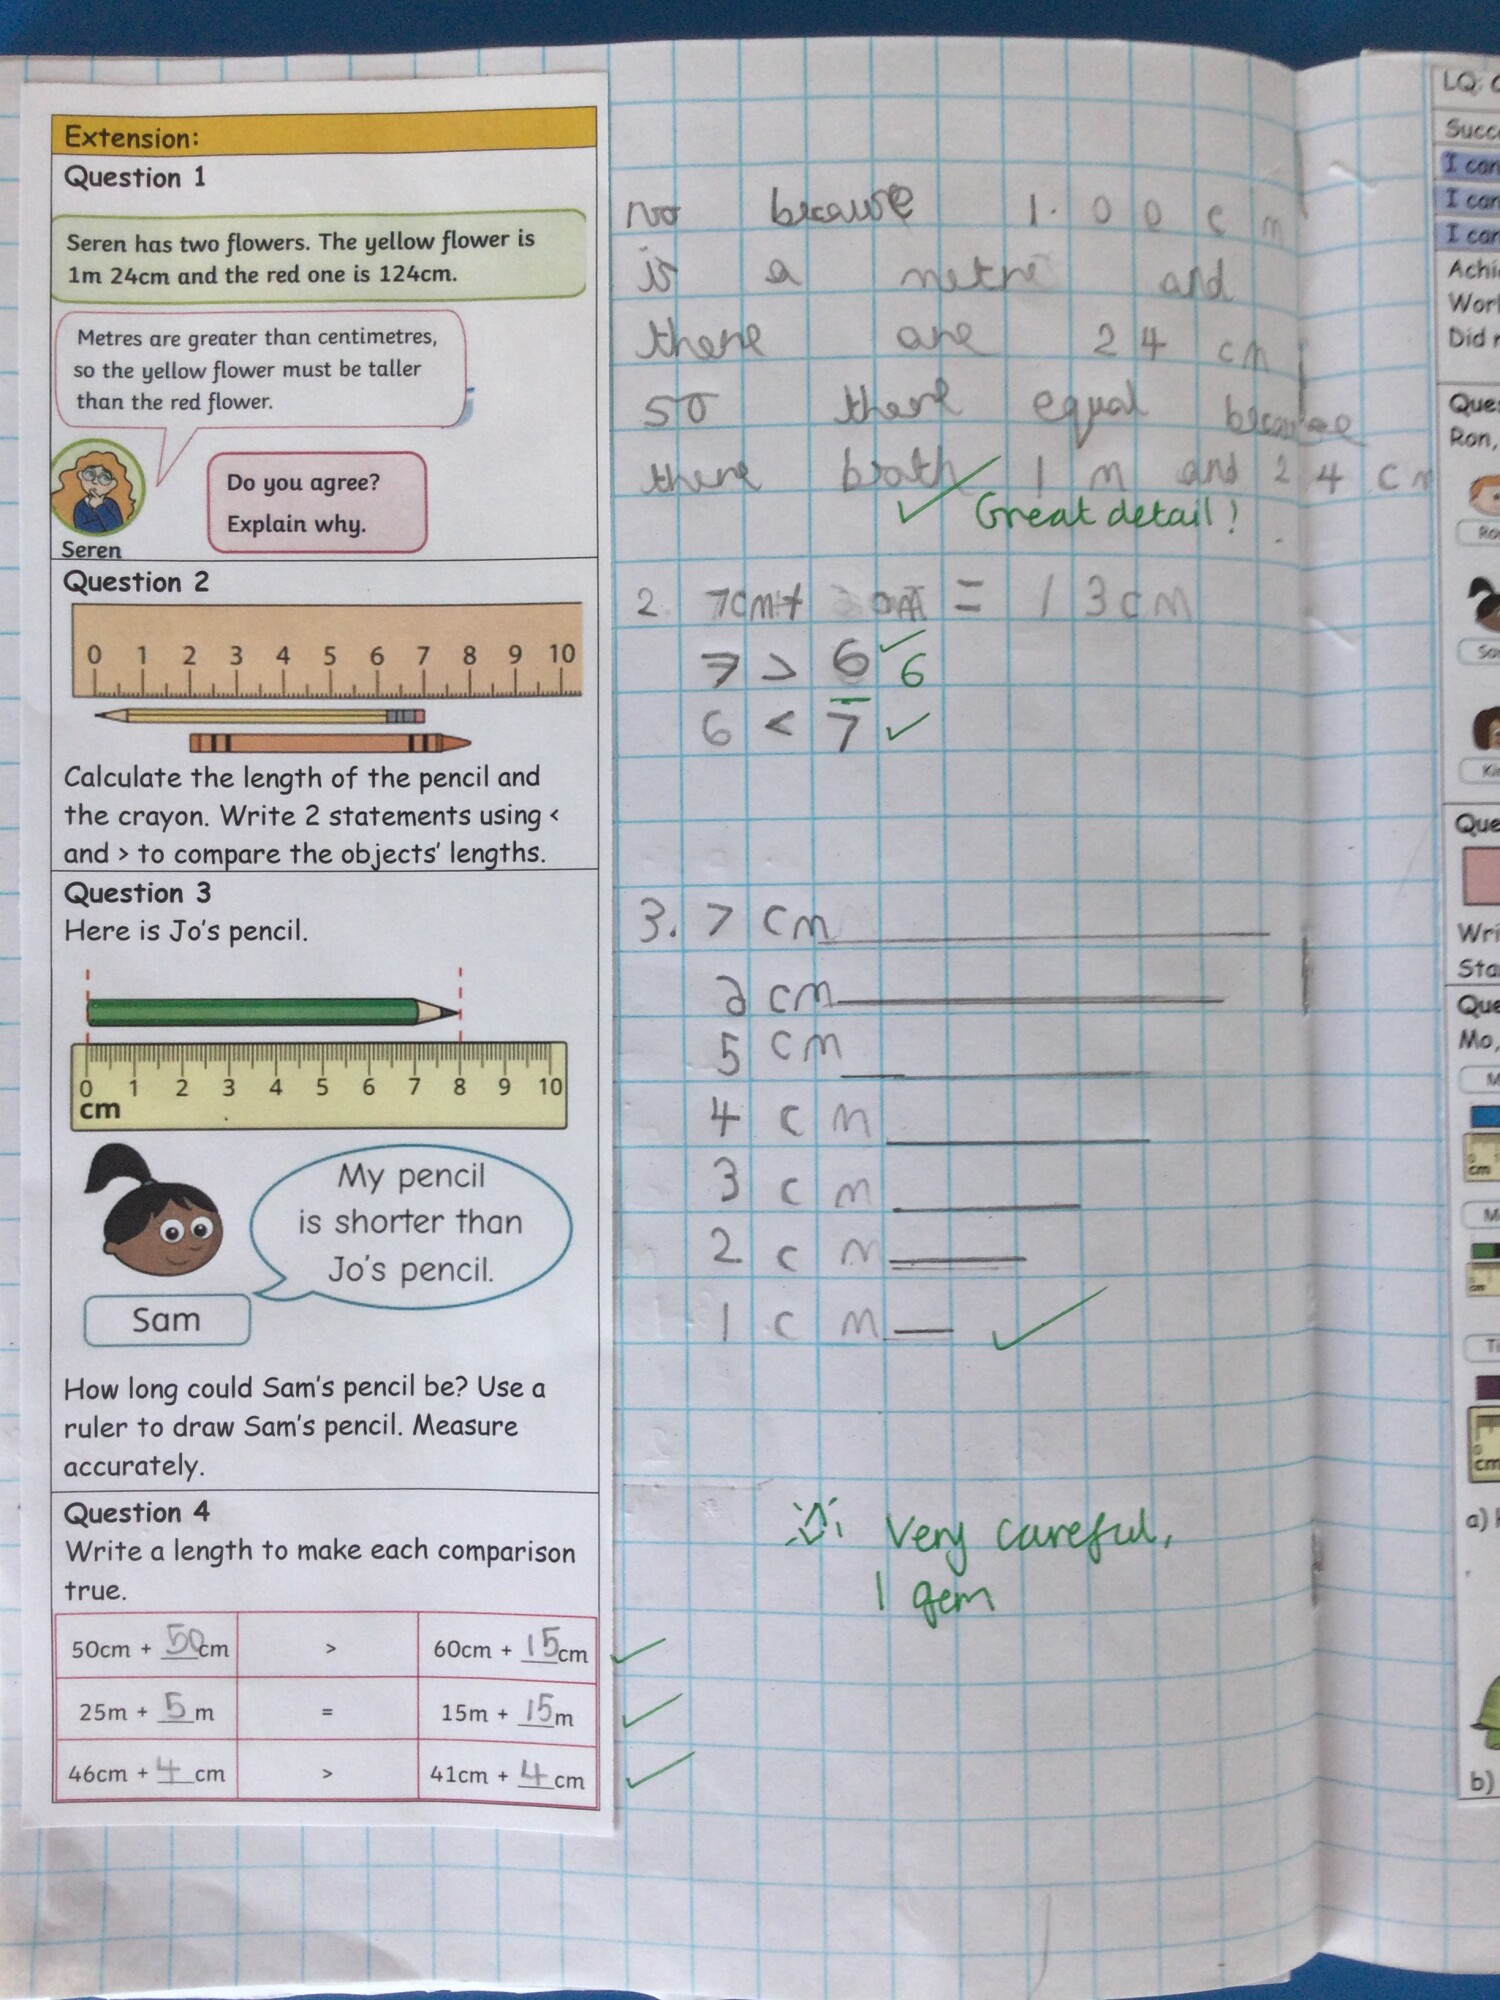 Extension:
Question 1
Seren has two flowers. The yellow flower is
1m 24cm and the red one is 124cm.
Metres are greater than centimetres,
so the yellow flower must be taller
than the red flower.
Do you agree?
Explain why.
Seren
no because 1.00cm
is a metre and
there are 24 cm
so there equal because
there both 1 m and 24 cm
Great detail!
Question 2
0 1 2 3 4 5 6 7 8 9 10
Calculate the length of the pencil and
the crayon. Write 2 statements using <
and > to compare the objects' lengths.
2. 7cm+ = 13cm
7 > 6 6
6 < 7
Question 3
Here is Jo's pencil.
0 1 2 3 4 5 6 7 8 9 10
cm
My pencil
is shorter than
Jo's pencil.
Sam
How long could Sam's pencil be? Use a
ruler to draw Sam's pencil. Measure
accurately.
3. 7 cm
cm
5 cm
4 cm
3 cm
2 cm
1 cm
Question 4
Write a length to make each comparison
true.
50cm + 50cm > 60cm + 15cm
25m + 5m = 15m + 15m
46cm + 4cm > 41cm + 4cm
Very careful,
1 gem
LQ:
I can
I can
I can
Ron,
Mo,
cm
cm
cm
a)
b)